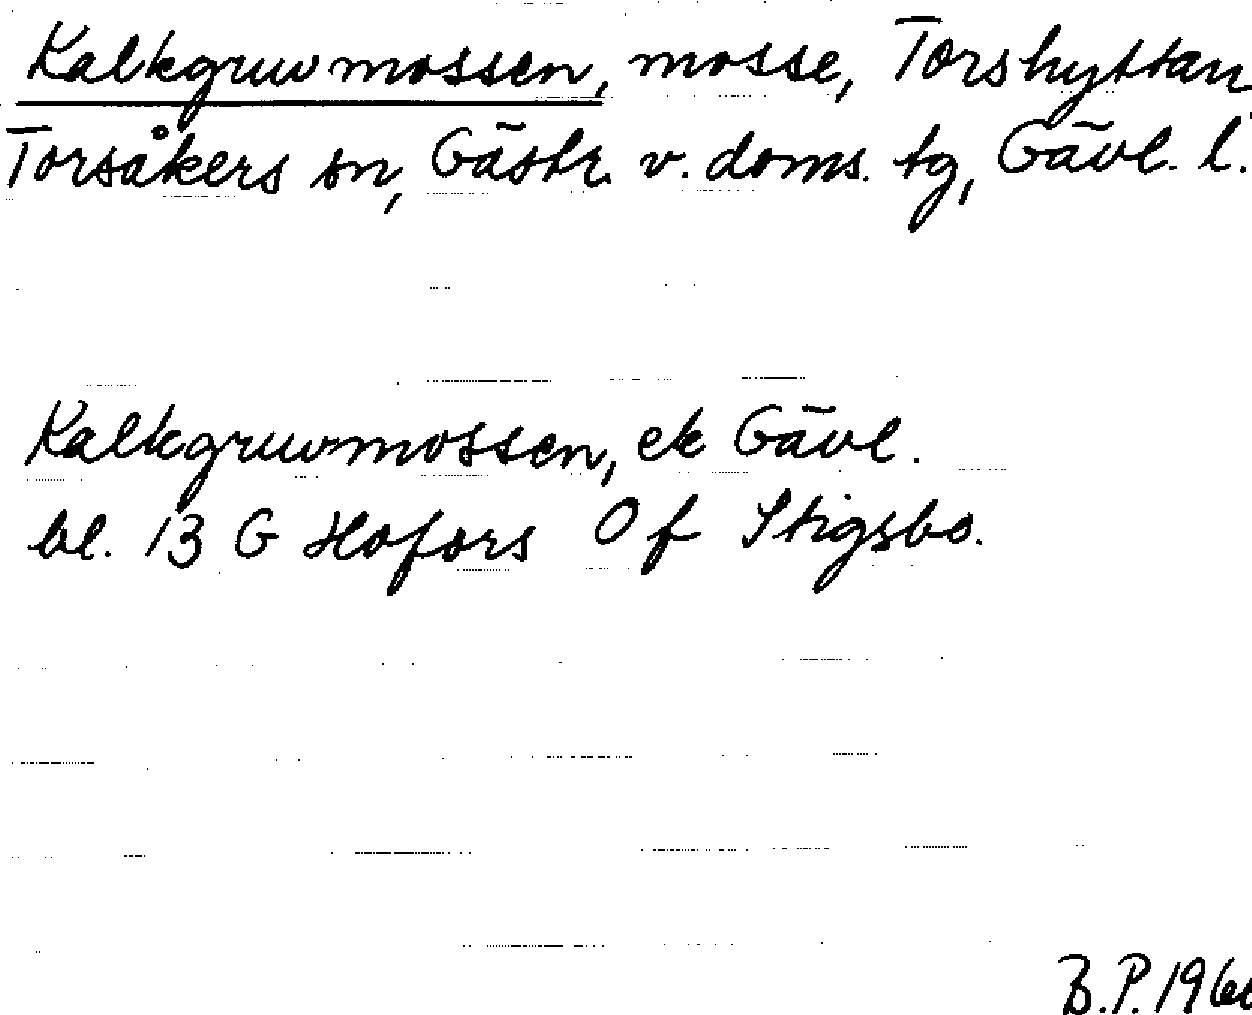 Kalkgruvmossen, mosse, Torshyttan
Torsåkers sn, Gästr. v. doms. tg, Gävl. l.
Kalkgruvmossen, ek Gävl.
bl. 13 G Hofors O f Stigsbo.
B.P.196